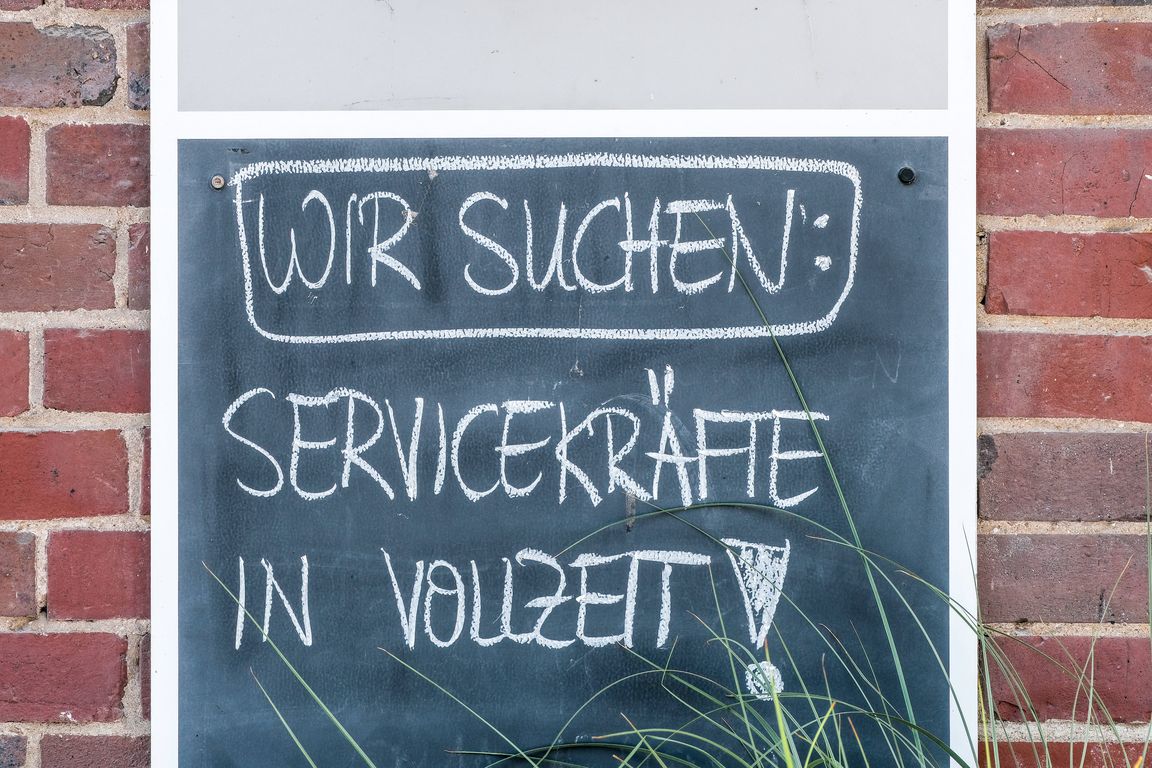 WIR SUCHEN:
SERVICEKRÄFTE
IN VOLLZEIT!